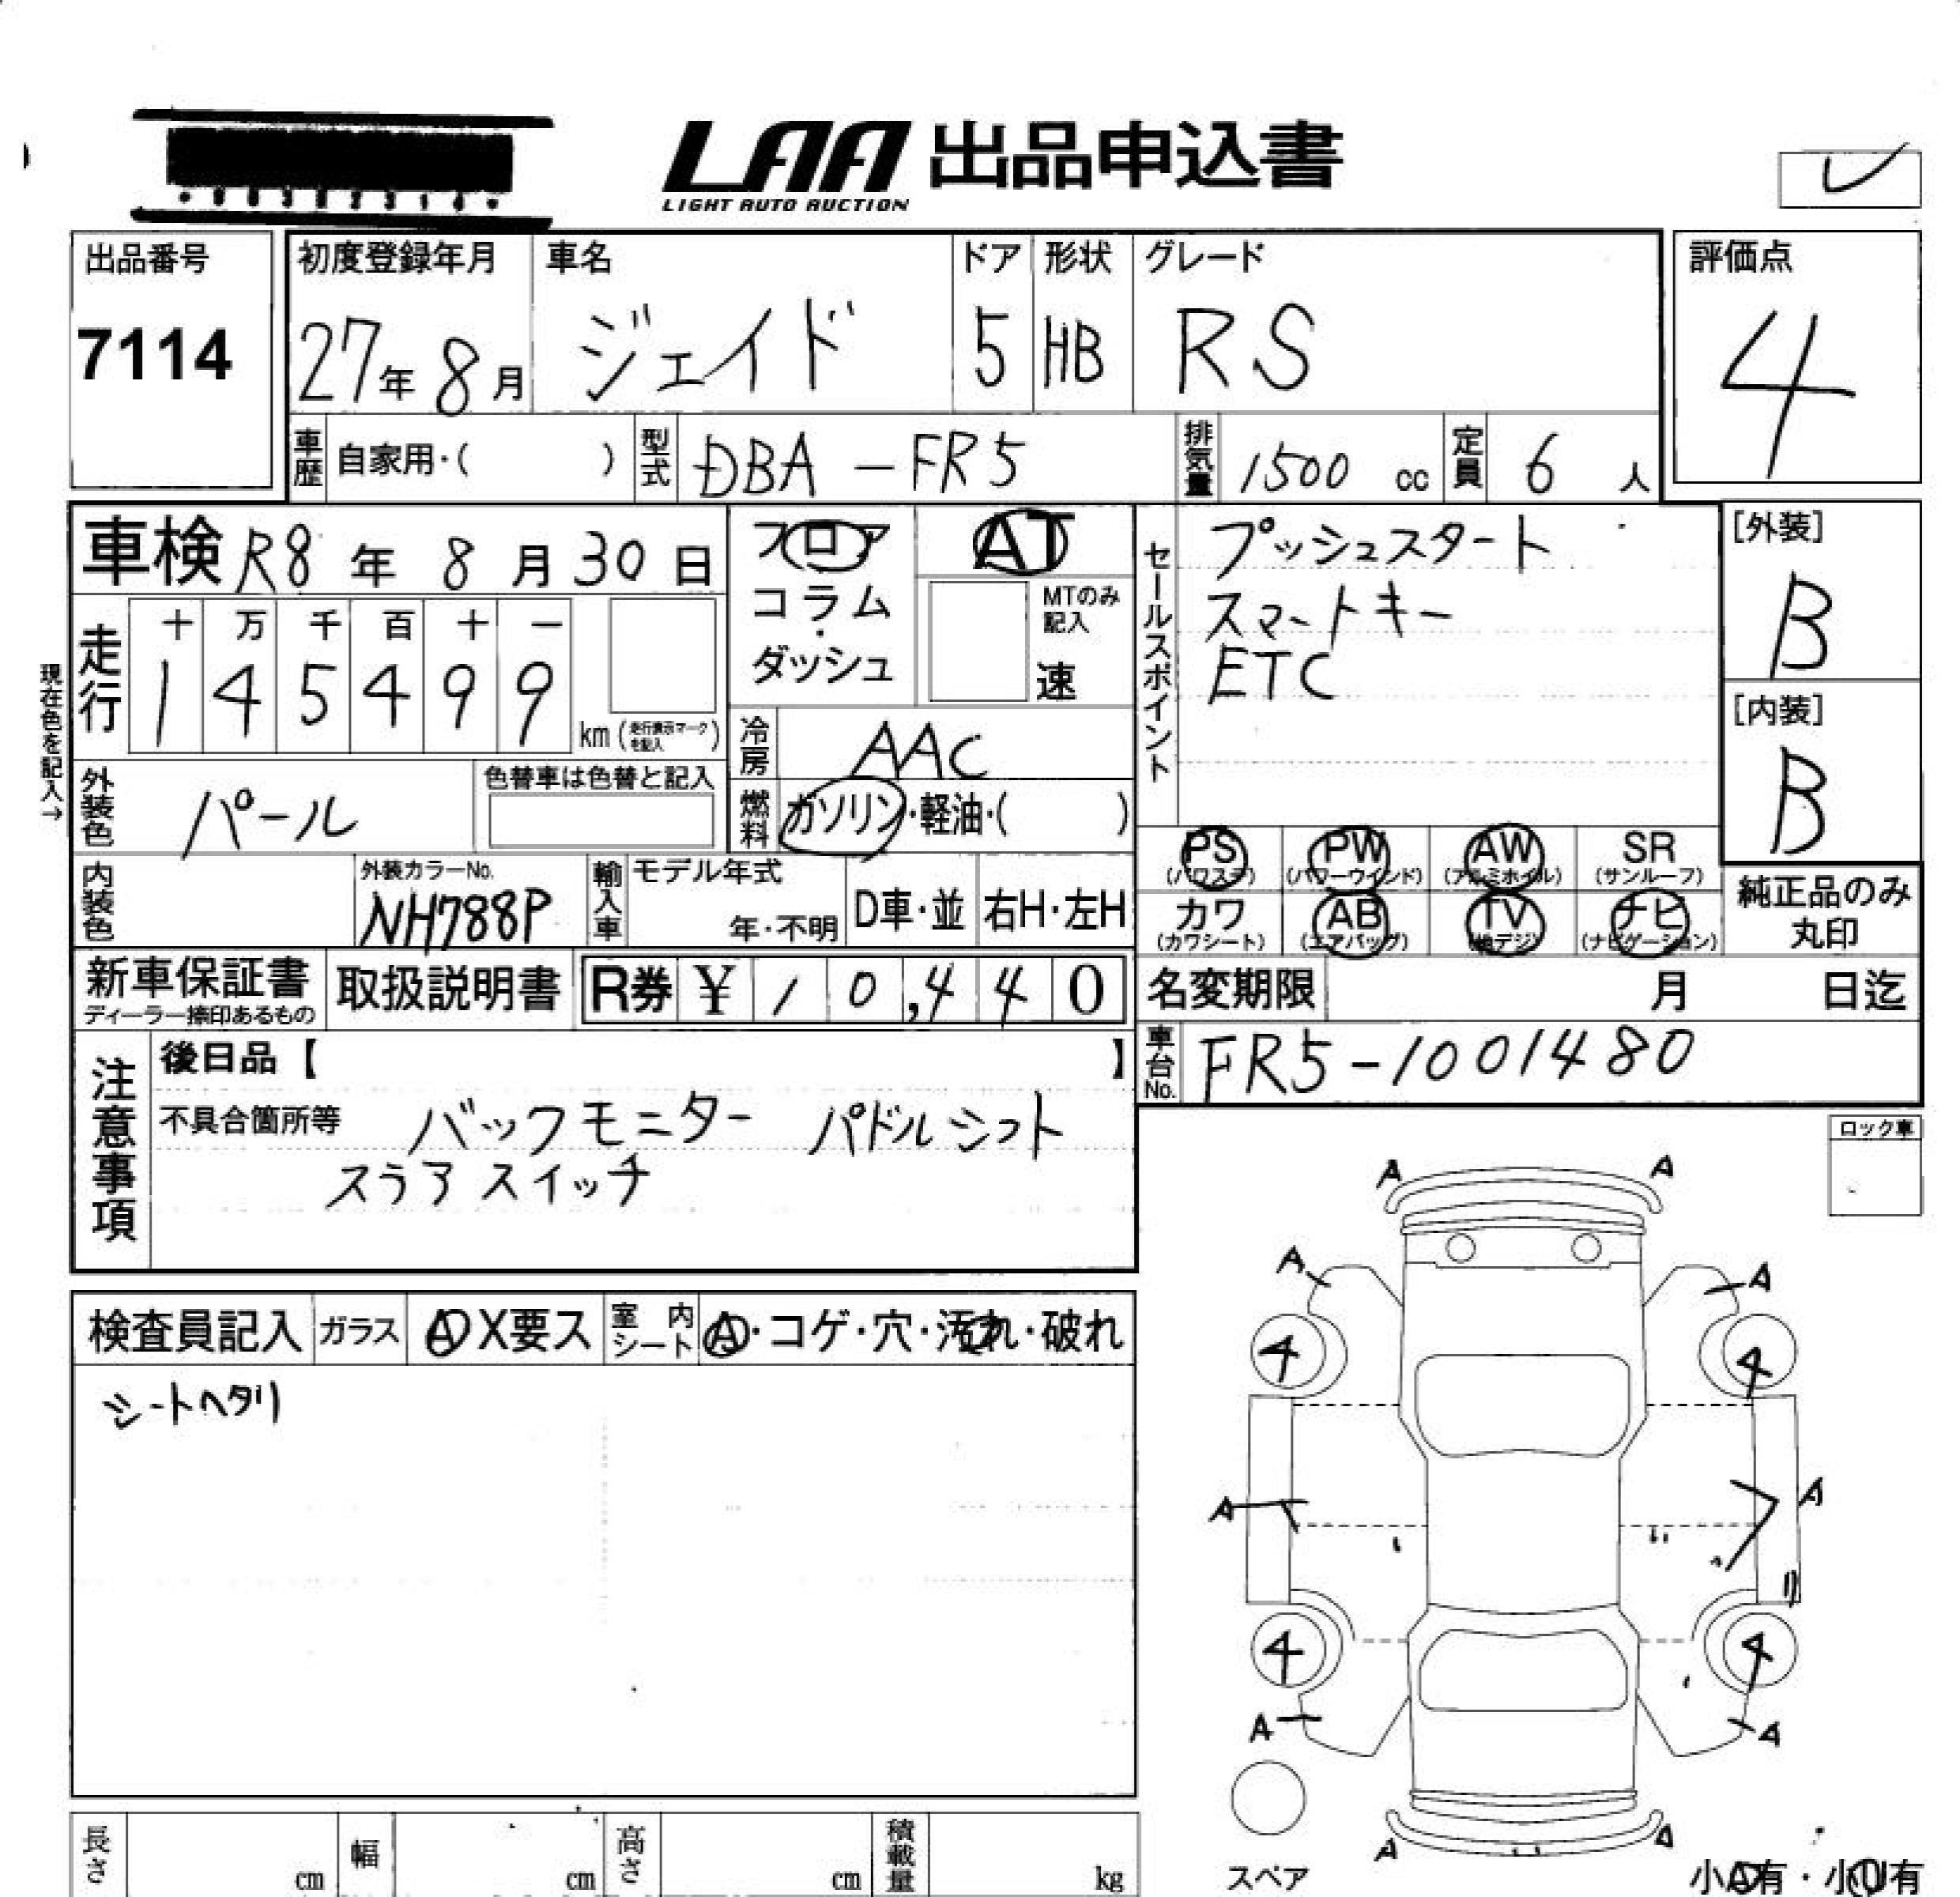 LAA 出品申込書
LIGHT AUTO AUCTION
出品番号
7114
初度登録年月
27年8月
車名
ジェイド
ドア
5
形状
HB
グレード
RS
評価点
4
車歴 自家用・( )
型式 DBA-FR5
排気量 1500 cc
定員 6 人
車検 R8年8月30日
フロア
コラム
・
ダッシュ
AT
MTのみ記入
速
セールスポイント
プッシュスタート
スマートキー
ETC
[外装]
B
[内装]
B
現在色を記入→
走行
十 万 千 百 十 一
1 4 5 4 9 9
km (走行表示マークを記入)
冷房 AAC
燃料 ガソリン・軽油・( )
外装色 パール
色替車は色替と記入
内装色
外装カラーNo.
NH788P
輸入車
モデル年式
年・不明
D車・並
右H・左H
PS (パワステ)
PW (パワーウインド)
AW (アルミホイル)
SR (サンルーフ)
カワ (カワシート)
AB (エアバッグ)
TV (地デジ)
ナビ (ナビゲーション)
純正品のみ
丸印
新車保証書
ディーラー捺印あるもの
取扱説明書
R券 ¥ 10,440
名変期限 月 日迄
車台No. FR5-1001480
注意事項
後日品【 】
不具合箇所等 バックモニター パドルシフト
スラアスイッチ
ロック車
検査員記入
ガラス A X要ス
室内シート A・コゲ・穴・汚れ・破れ
シートヘタリ
A A
A A
4 4
A A
4 4
A A
A A
スペア
小A有・小U有
長さ cm
幅 cm
高さ cm
積載量 kg